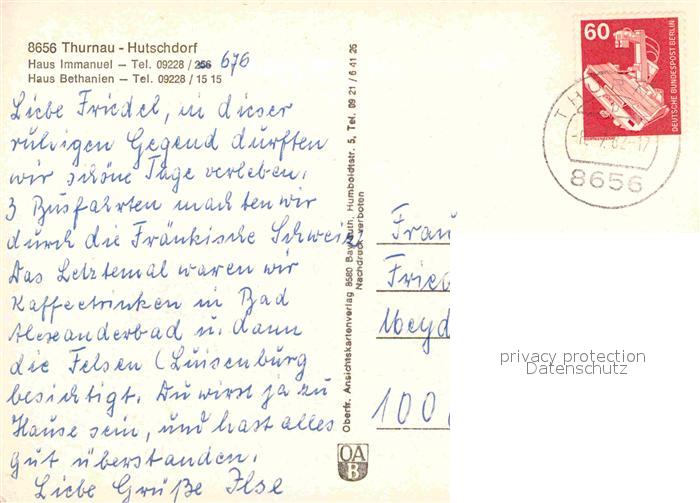 8656 Thurnau - Hutschdorf
Haus Immanuel — Tel. 09228 / 256 676
Haus Bethanien — Tel. 09228 / 15 15
Liebe Friedel, in dieser
ruhigen Gegend durften
wir schöne Tage verleben.
3 Busfahrten machten wir
durch die Fränkische Schweiz
Das Letztemal waren wir
Kaffeetrinken in Bad
Alexanderbad u. dann
die Felsen (Luisenburg
besichtigt. Du wirst ja zu
Hause sein, und hast alles
gut überstanden.
Liebe Grüße Ilse
Oberfr. Ansichtskartenverlag 8580 Bayreuth, Humboldtstr. 5, Tel. 09 21 / 6 41 26
Nachdruck verboten
OA
B
60
DEUTSCHE BUNDESPOST BERLIN
8656
Frau
Fried
Meyd
100
privacy protection
Datenschutz